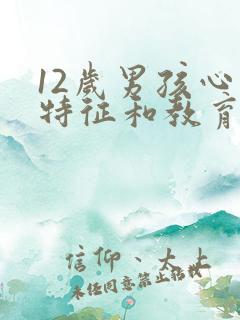 12岁男孩心
特征和教育
信仰、大大
未经同意禁止搭讪